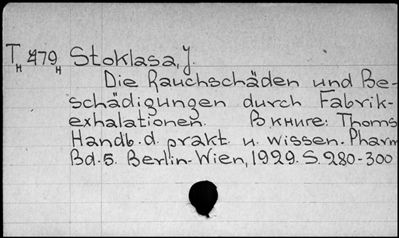 Tн 479н Stoklasa, J.
Die Rauchschäden und Be-
schädigungen durch Fabrik-
exhalationen. В книге: Thoms
Handb. d. prakt. u. wissen. Pharm
Bd. 5. Berlin-Wien, 1929. S. 280-300